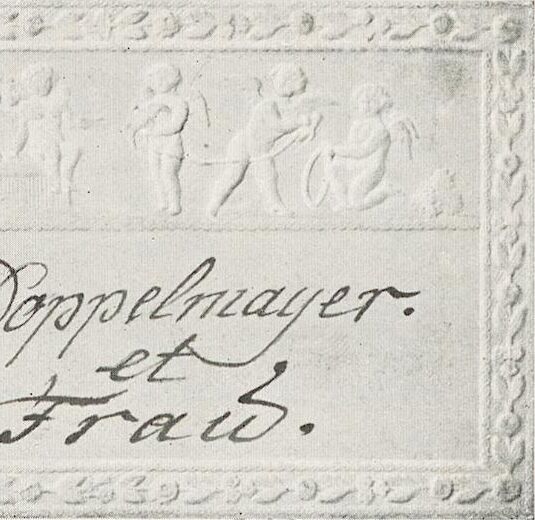 Doppelmayer.
et
Frau.